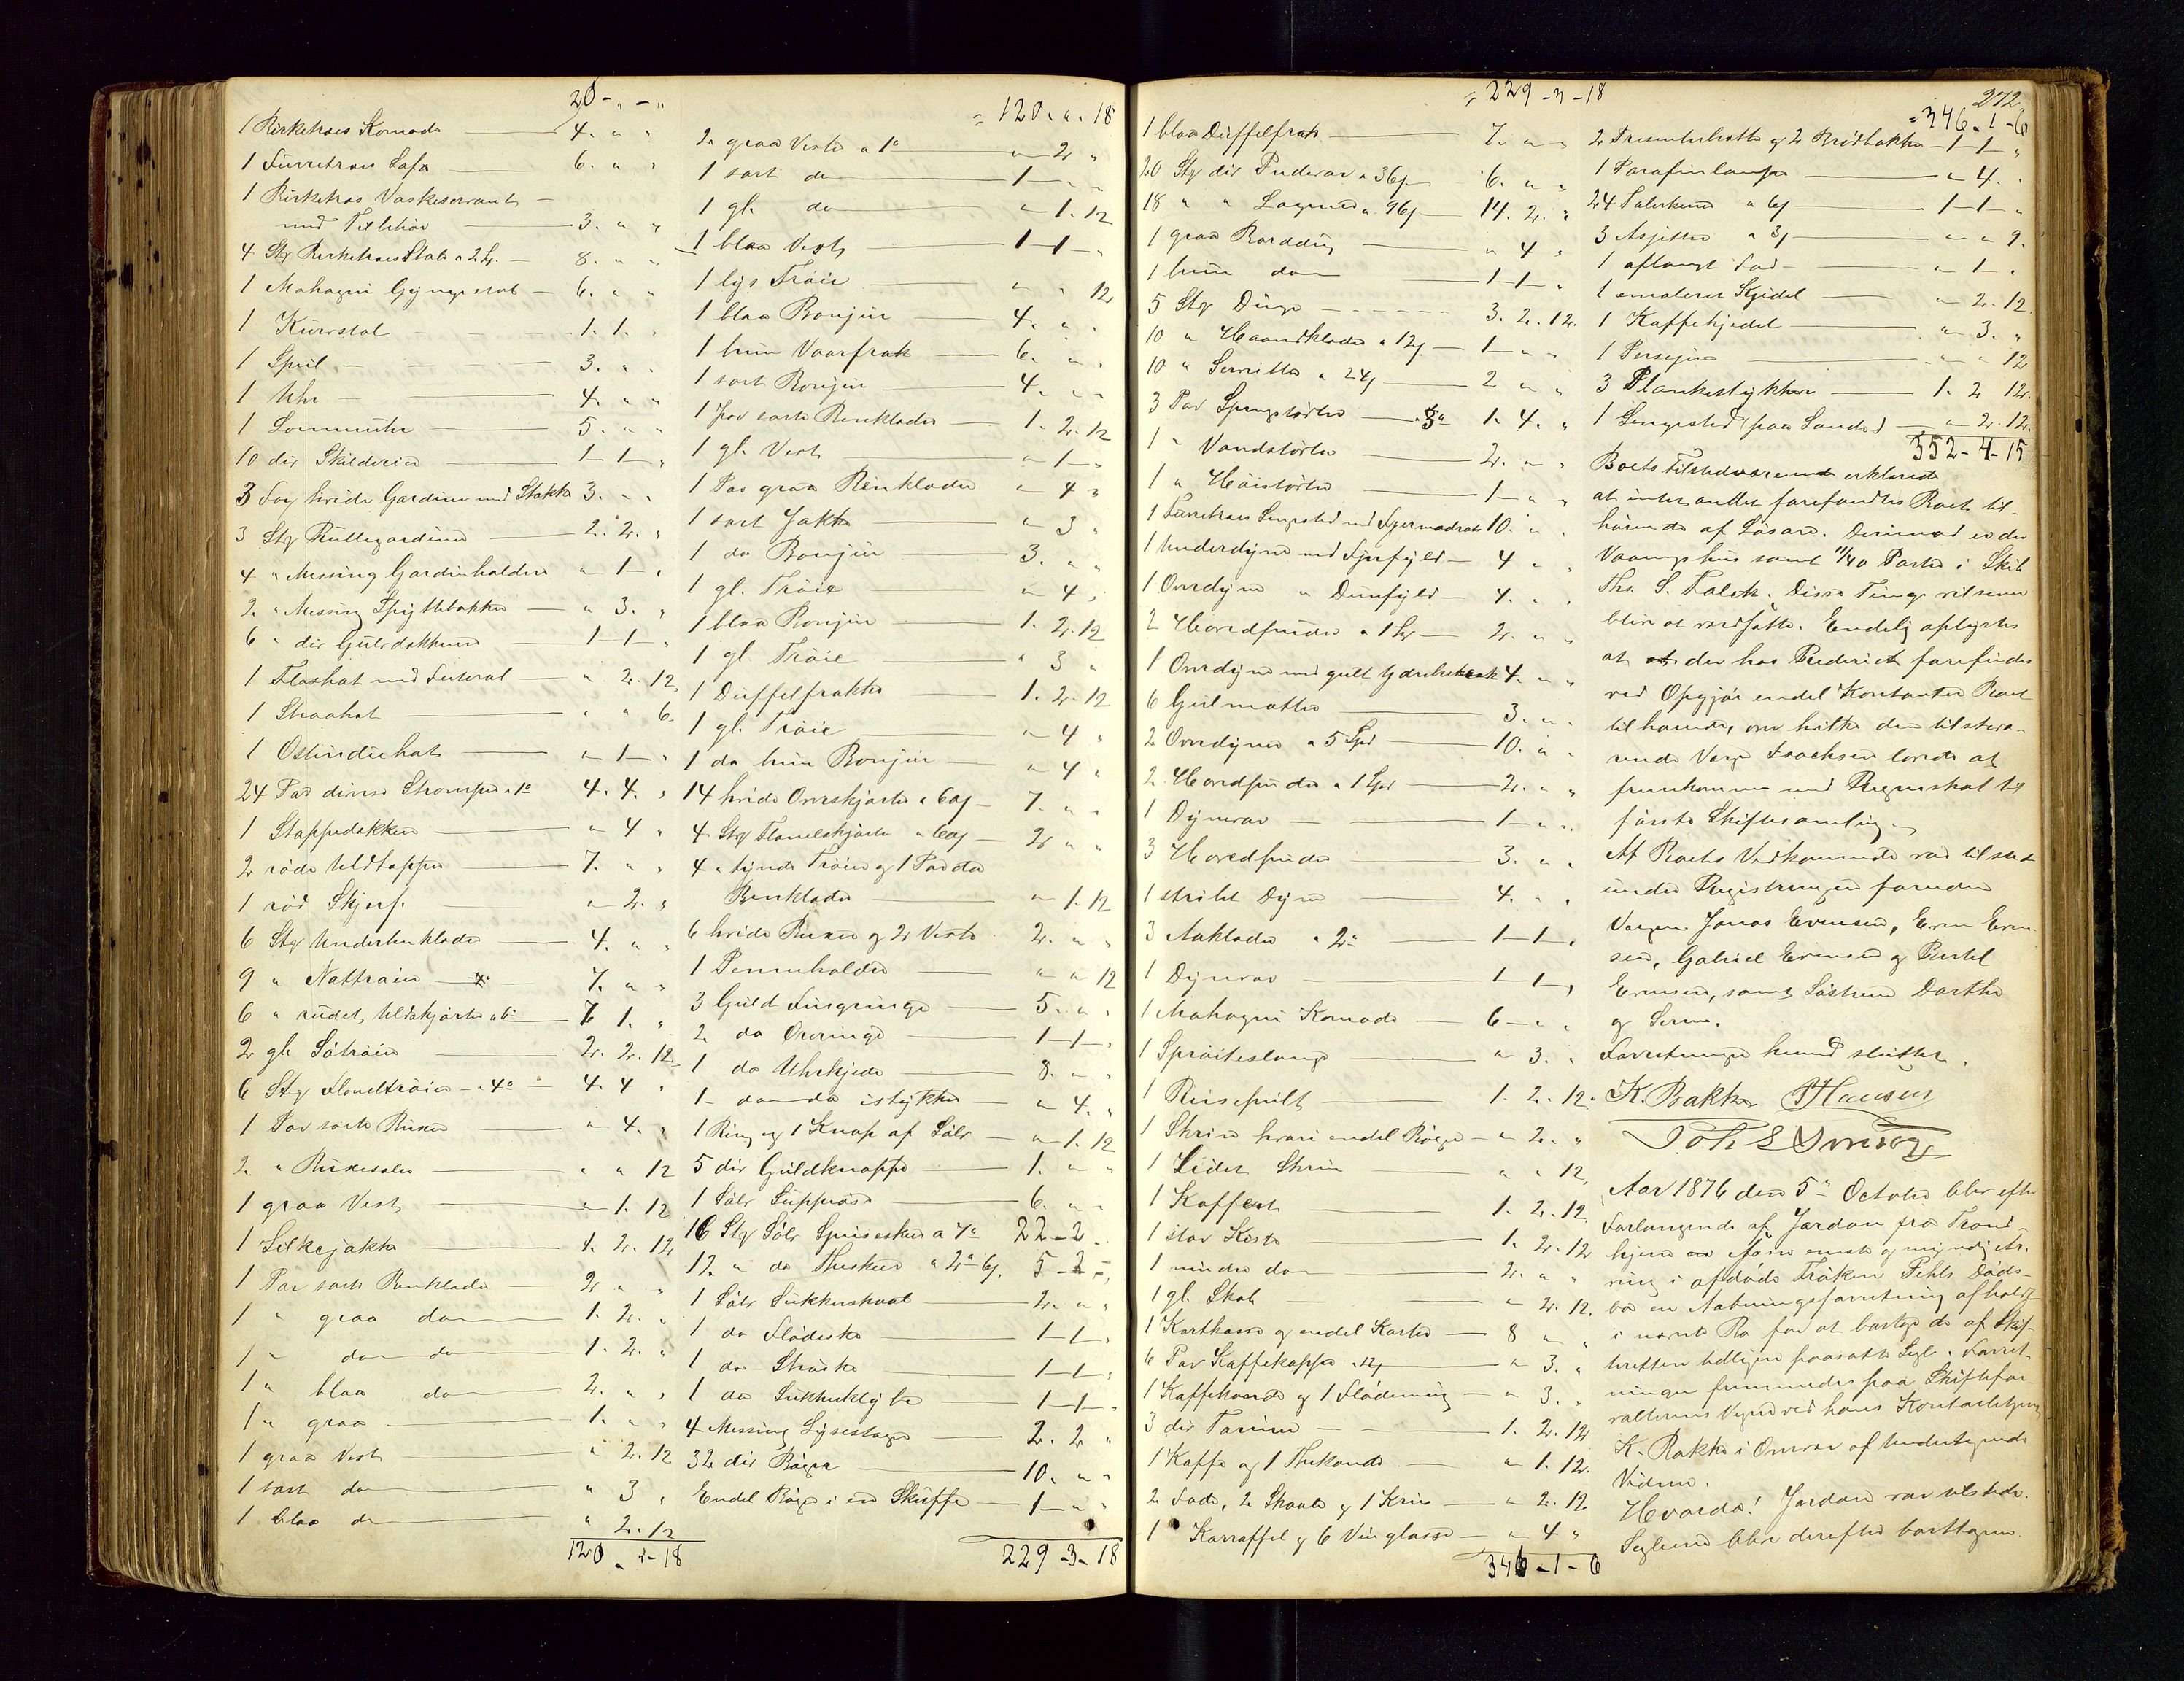 20 - „ - „
1 Birketræs Komode 4. „ „
1 Furretræs Sofa 6. „ „
1 Birketræs Vaskeservant
med Tilbehør 3. „ „
4 Stk Birketræs Stole a 2 Spd. 8. „ „
1 Mahogni Gyngestol 6. „ „
1 Kurvstol 1. 1. „
1 Speil 3. „ „
1 Uhr 4. „ „
1 Lommeuhr 5. „ „
10 div Skilderier 1 - 1 - „
3 Fag hvide Gardiner med Stokke 3. „ „
3 Stk Rullegardiner 2. 2. „
4 „ Messing Gardinholdere „ 1 „
2 „ Messing Spyttebakker „ 3. „
6 „ div Gulvdækkener 1 - 1 - „
1 Floshat med Futeral „ 2. 12
1 Straahat „ „ 6
1 Ostindiehat „ 1 - „
24 Par diverse Strømper a 1 4. 4. „
1 Stoppedækken „ 4 „
2 røde Uldtæpper 7. „ „
1 rød Skjerf „ 2. „
6 Stk Underbenklæder 4. „ „
9 „ Nattrøier 7. „ „
6 „ rudet Uldskjorter 7 1. „
2 gl. Søtrøier 2. 2. 12
6 Stk Flonelstrøier a 4 4. 4 „
1 Par sorte Buxer „ 4. „
2 „ Buxeseler „ „ 12
1 graa Vest „ 1. 12
1 Silkejakke 1. 2. 12
1 Par sorte Benklæder 2 „ „
1 „ graa do 1. 2. „
1 „ do do 1. 2. „
1 „ blaa do 2. „ „
1 „ graa 1. „ „
1 graa Vest „ 2. 12
1 sort do „ 3 „
1 blaa do „ 2. 12
120 „ 2 - 18
= 120. „. 18
2 graa Veste a 1 „ 2 „
1 sort do 1 „ „
1 gl. do „ 1. 12
1 blaa Vest 1 - 1 - „
1 lys Trøie „ „ 12
1 blaa Bonjur 4. „ „
1 brun Vaarfrak 6. „ „
1 sort Bonjur 4. „ „
1 par sorte Benklæder 1. 2. 12
1 gl. Vest „ 1 - „
1 Par graa Benklæder „ 4 „
1 sort Jakke „ 3 „
1 do Bonjur 3. „ „
1 gl. Trøie „ 4 „
1 blaa Bonjur 1. 2. 12
1 gl. Trøie „ 3 „
1 Duffelfrakke 1. 2. 12
1 gl. Trøie „ 4 „
1 do brun Bonjur „ 4 „
14 hvide Overskjorter a 60 s 7. „ „
4 Stk Flanelskjorter a 60 s 2 „ „
4 „ tynde Trøier og 1 Par do
Benklæder „ 1. 12
6 hvide Buxer og 2 Veste 2. „ „
1 Penneholder „ „ 12
3 Guld Fingringe 5. „ „
2 do Øreringe 1 - 1 - „
1 do Uhrkjede 8. „ „
1 do do istykker „ 4. „
1 Ring og 1 Knap af Sølv „ 1. 12
5 div Guldknapper 1. „ „
1 Sølv Suppeøse 6. „ „
16 Stk Sølv Spiseskeer a 7 22 - 2 -
12 „ do Theskeer a 2 - 6 s. 5 - 2 -
1 Sølv Sukkerskaal 2. „ „
1 do Flødeske 1 - 1 - „
1 do Strøske 1 - 1 - „
1 do Sukkerklype 1 - 1 - „
4 Messing Lysestager 2. 2 „
32 div Bøger 10. „ „
Endel Bøger i en Skuffe 1 „ „
229 - 3 - 18
= 229 - 3 - 18
1 blaa Duffelfrak 7. „ „
20 Stk div Pudevar a 36 s 6. „ „
18 „ „ Lagener a 96 s 14. 2. „
1 graa Borddug „ 4 „
1 brun do 1 - 1 - „
5 Stk Duge 3. 2. 12.
10 „ Haandklæder a 12 s 1 „ „
10 „ Servietter a 24 s 2 „ „
3 Par Springstøvler 1. 4. „
1 „ Vandstøvler 2. „ „
1 „ Høistøvler 1 „ „
1 Furretræs Sengested med Fjermadrats 10. „ „
1 Underdyne med Fjerfyld 4 „ „
1 Overdyne „ Dunfyld 4. „ „
2 Hovedpuder a 1 Spd 2. „ „
1 Overdyne med gult Ydrebetræk 4. „ „
6 Gulmatter 3. „ „
2 Overdyner a 5 Spd 10. „ „
2 Hovedpuder a 1 Spd 2. „ „
1 Dynevar 1 „ „
3 Hovedpuder 3. „ „
1 stribet Dyne 4. „ „
3 Aaklæder a 2 1 - 1 „
1 Dynevar 1 - 1 „
1 Mahogni Komode 6 „ „
1 Sprøiteslange „ 3. „
1 Reisepult 1. 2. 12.
1 Skrin hvori endel Bøger „ 2. „
1 Lidet Skrin „ „ 12
1 Koffert 1. 2. 12
1 stor Kiste 1. 2. 12
1 mindre do 2. „ „
1 gl. Skab „ 2. 12.
1 Kortkasse og endel Karter 8 „ „
6 Par Kaffekopper a 12 s „ 3. „
1 Kaffekande og 1 Flødemug „ 3. „
3 div Tariner 1. 2. 12
1 Kaffe og 1 Thekande „ 1. 12.
2 Fade, 2 Skaale og 1 Krus „ 2. 12
1 Karraffel og 6 Vinglasse „ 4 „
346 - 1 - 6
272
= 346 - 1 - 6
2 Presenterbrætte og 2 Brødbakker 1 - 1 - „
1 Parafinlampe „ 4. „
24 Talerkener a 6 s 1 - 1 - „
3 Asjetter a 3 s „ „ 9.
1 aflangt Fad „ 1 - „
1 emaleret Kjedel „ 2. 12
1 Kaffekjedel „ 3. „
1 „ „ 12
3 Plankestykker 1. 2 12.
1 Sengested (paa Sande) „ 2. 12.
352 - 4 - 15
Boets Tilstedværende erklærede
at intet andet forefandtes Boet til-
hørende af Løsøre. Derimod er der
Vaaningshus samt 11/40 Parter i Skib
Ths. S. Falck. Disse Ting vil senere
blive at værdsætte. Endelig oplystes
at der hos Rederiet forefindes
ved Opgjør endel Kontanter Boet
tilhørende, om hvilke den tilstedevæ-
rende Verge Isachsen lovede at
fremkomme med Regnskab til
første Skiftesamling.
Af Boets Vedkommende var tilstede
under Registreringen foruden
Vergen Jonas Evensen, Even Even-
sen, Gabriel Evensen og Bertel
Evensen, samt Søstrene Dorthe
og Serine.
Forretningen hermed sluttet.
K. Bakke PHansen
Aar 1876 den 5 October blev efter
Forlangende af Jordan fra Trond-
hjem eneste og myndig Ar-
ving i afdøde Frøken Døds-
bo en Aabningsforretning afholdt
i nævnte Bo for at borttage de af Skif-
teretten tidligere paasatte Segl. Forret-
ningen fremmedes paa Skiftefor-
valterens Vegne ved hans Kontorbetjent
K. Bakke i Overvær af Undertegnede
Vidner.
Hvorda! Jordan var tilstede.
Seglene blev derefter borttagne.